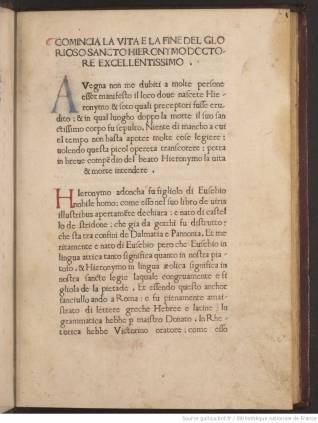 COMINCIA LA VITA E LA FINE DEL GLO
RIOSO SANCTO HIERONYMO DOCTO
RE EXCELLENTISSIMO .
AVegna non me dubiti a molte persone
esser manifesto il loco doue nascete Hie
ronymo & soto quali preceptori fusse eru
dito : & in qual luogho doppo la morte il suo san
ctissimo corpo fu sepulto, Niente di mancho a cui
el tempo non basta apoter molte cose legiere :
uolendo questa picol opereta transcorere : potra
in breue compēdio del beato Hieronymo la uita
& morte intendere .
HIeronymo adoncha fu figliolo di Eusebio
nobile homo; come esso nel suo libro de uiris
illustribus apertamēte dechiara : e nato di castel
lo de stridone : che gia da gotthi fu distrutto :
che sta tra confini de Dalmatia e Pannonia, Et me
ritamente e nato di Eusebio pero che Eusebio in
lingua attica tanto significa quanto in nostra pia
toso, & Hieronymo in lingua æolica significa in
nostra sancte legie laquale congruamente e fi
gliola de la pietade . Et essendo questo anchor
fanciullo ando a Roma : e fu pienamente amai
strato di lēttere greche Hebree e latine : In
grammatica hebbe p maestro Donato . In Rhe
torica hebbe Victorino oratore : come esso
Source gallica.bnf.fr / Bibliothèque nationale de France